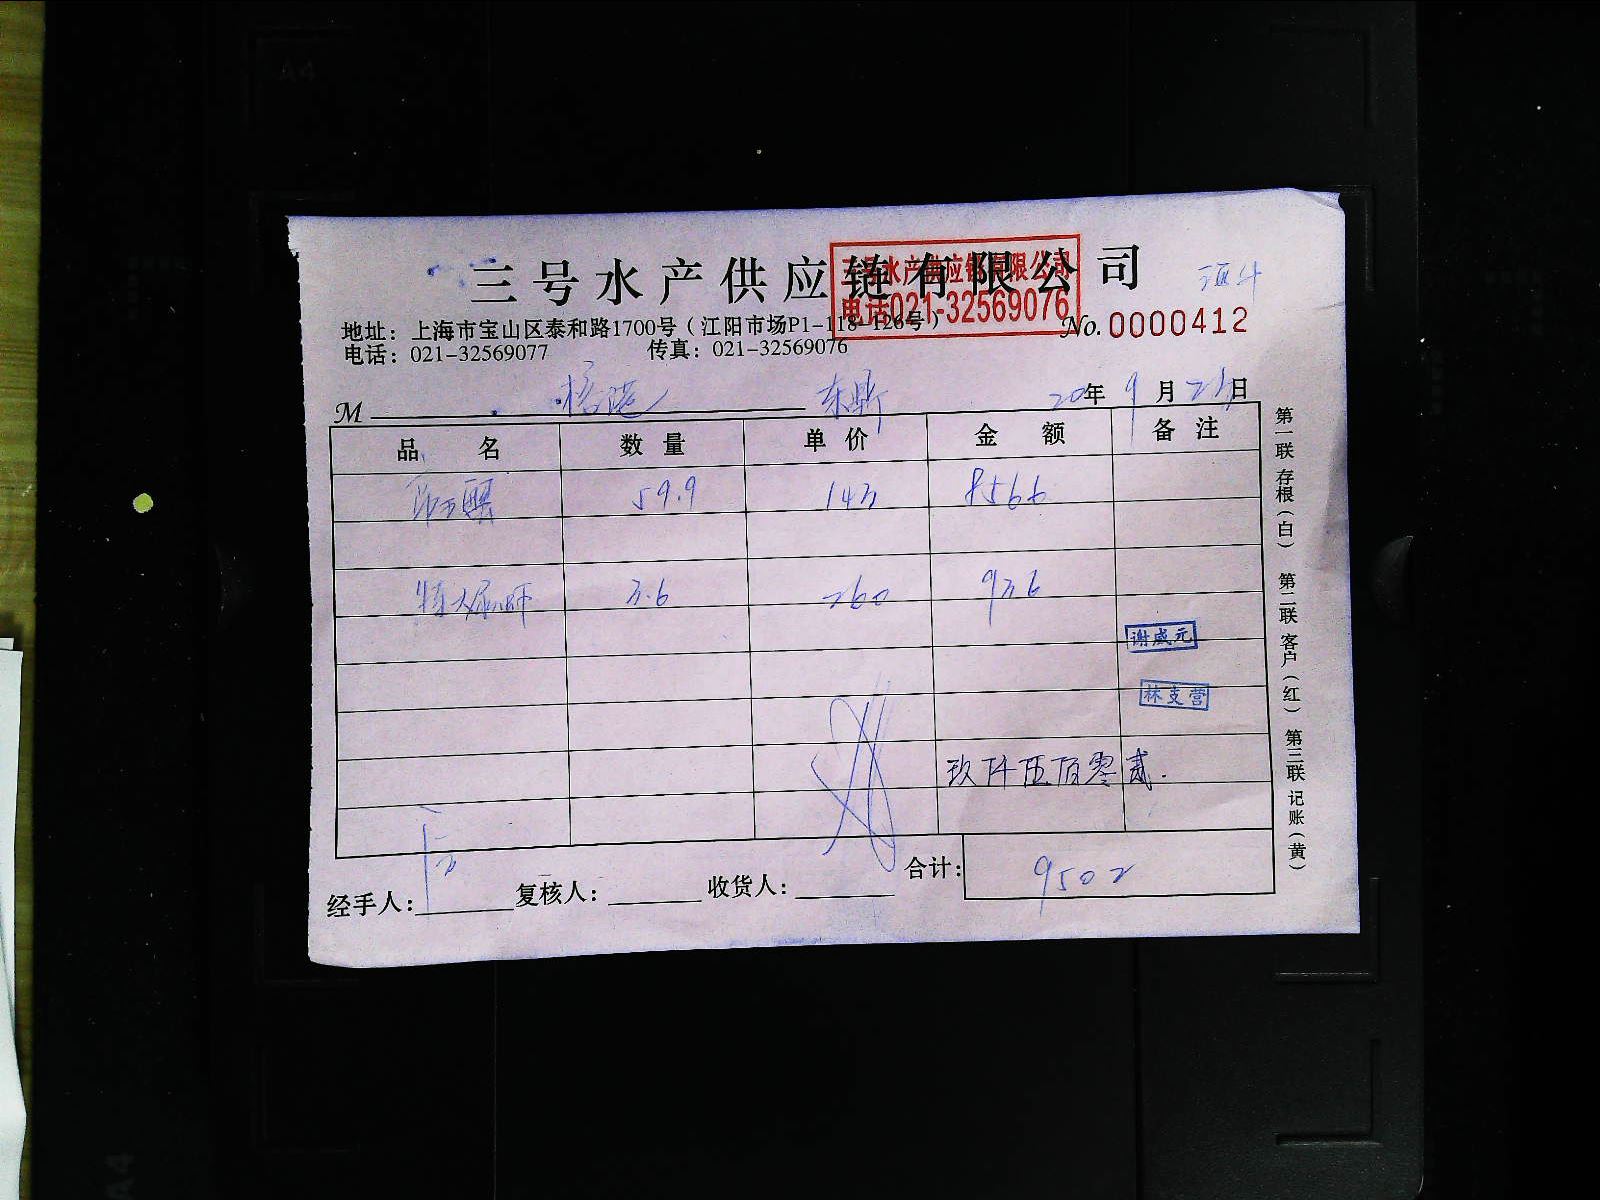 三号水产供应链有限公司
三号水产供应链有限公司
电话021-32569076
地址：上海市宝山区泰和路1700号（江阳市场P1-118-126号）
No. 0000412
电话：021-32569077 传真：021-32569076
M 东鼎 20年9月21日
品名 数量 单价 金额 备注
59.9 143 8566
3.6 260 936
谢咸元
林支营
玖仟伍佰零贰.
合计： 9502
经手人： 复核人： 收货人：
第一联 存根（白） 第二联 客户（红） 第三联 记账（黄）
A4
A4